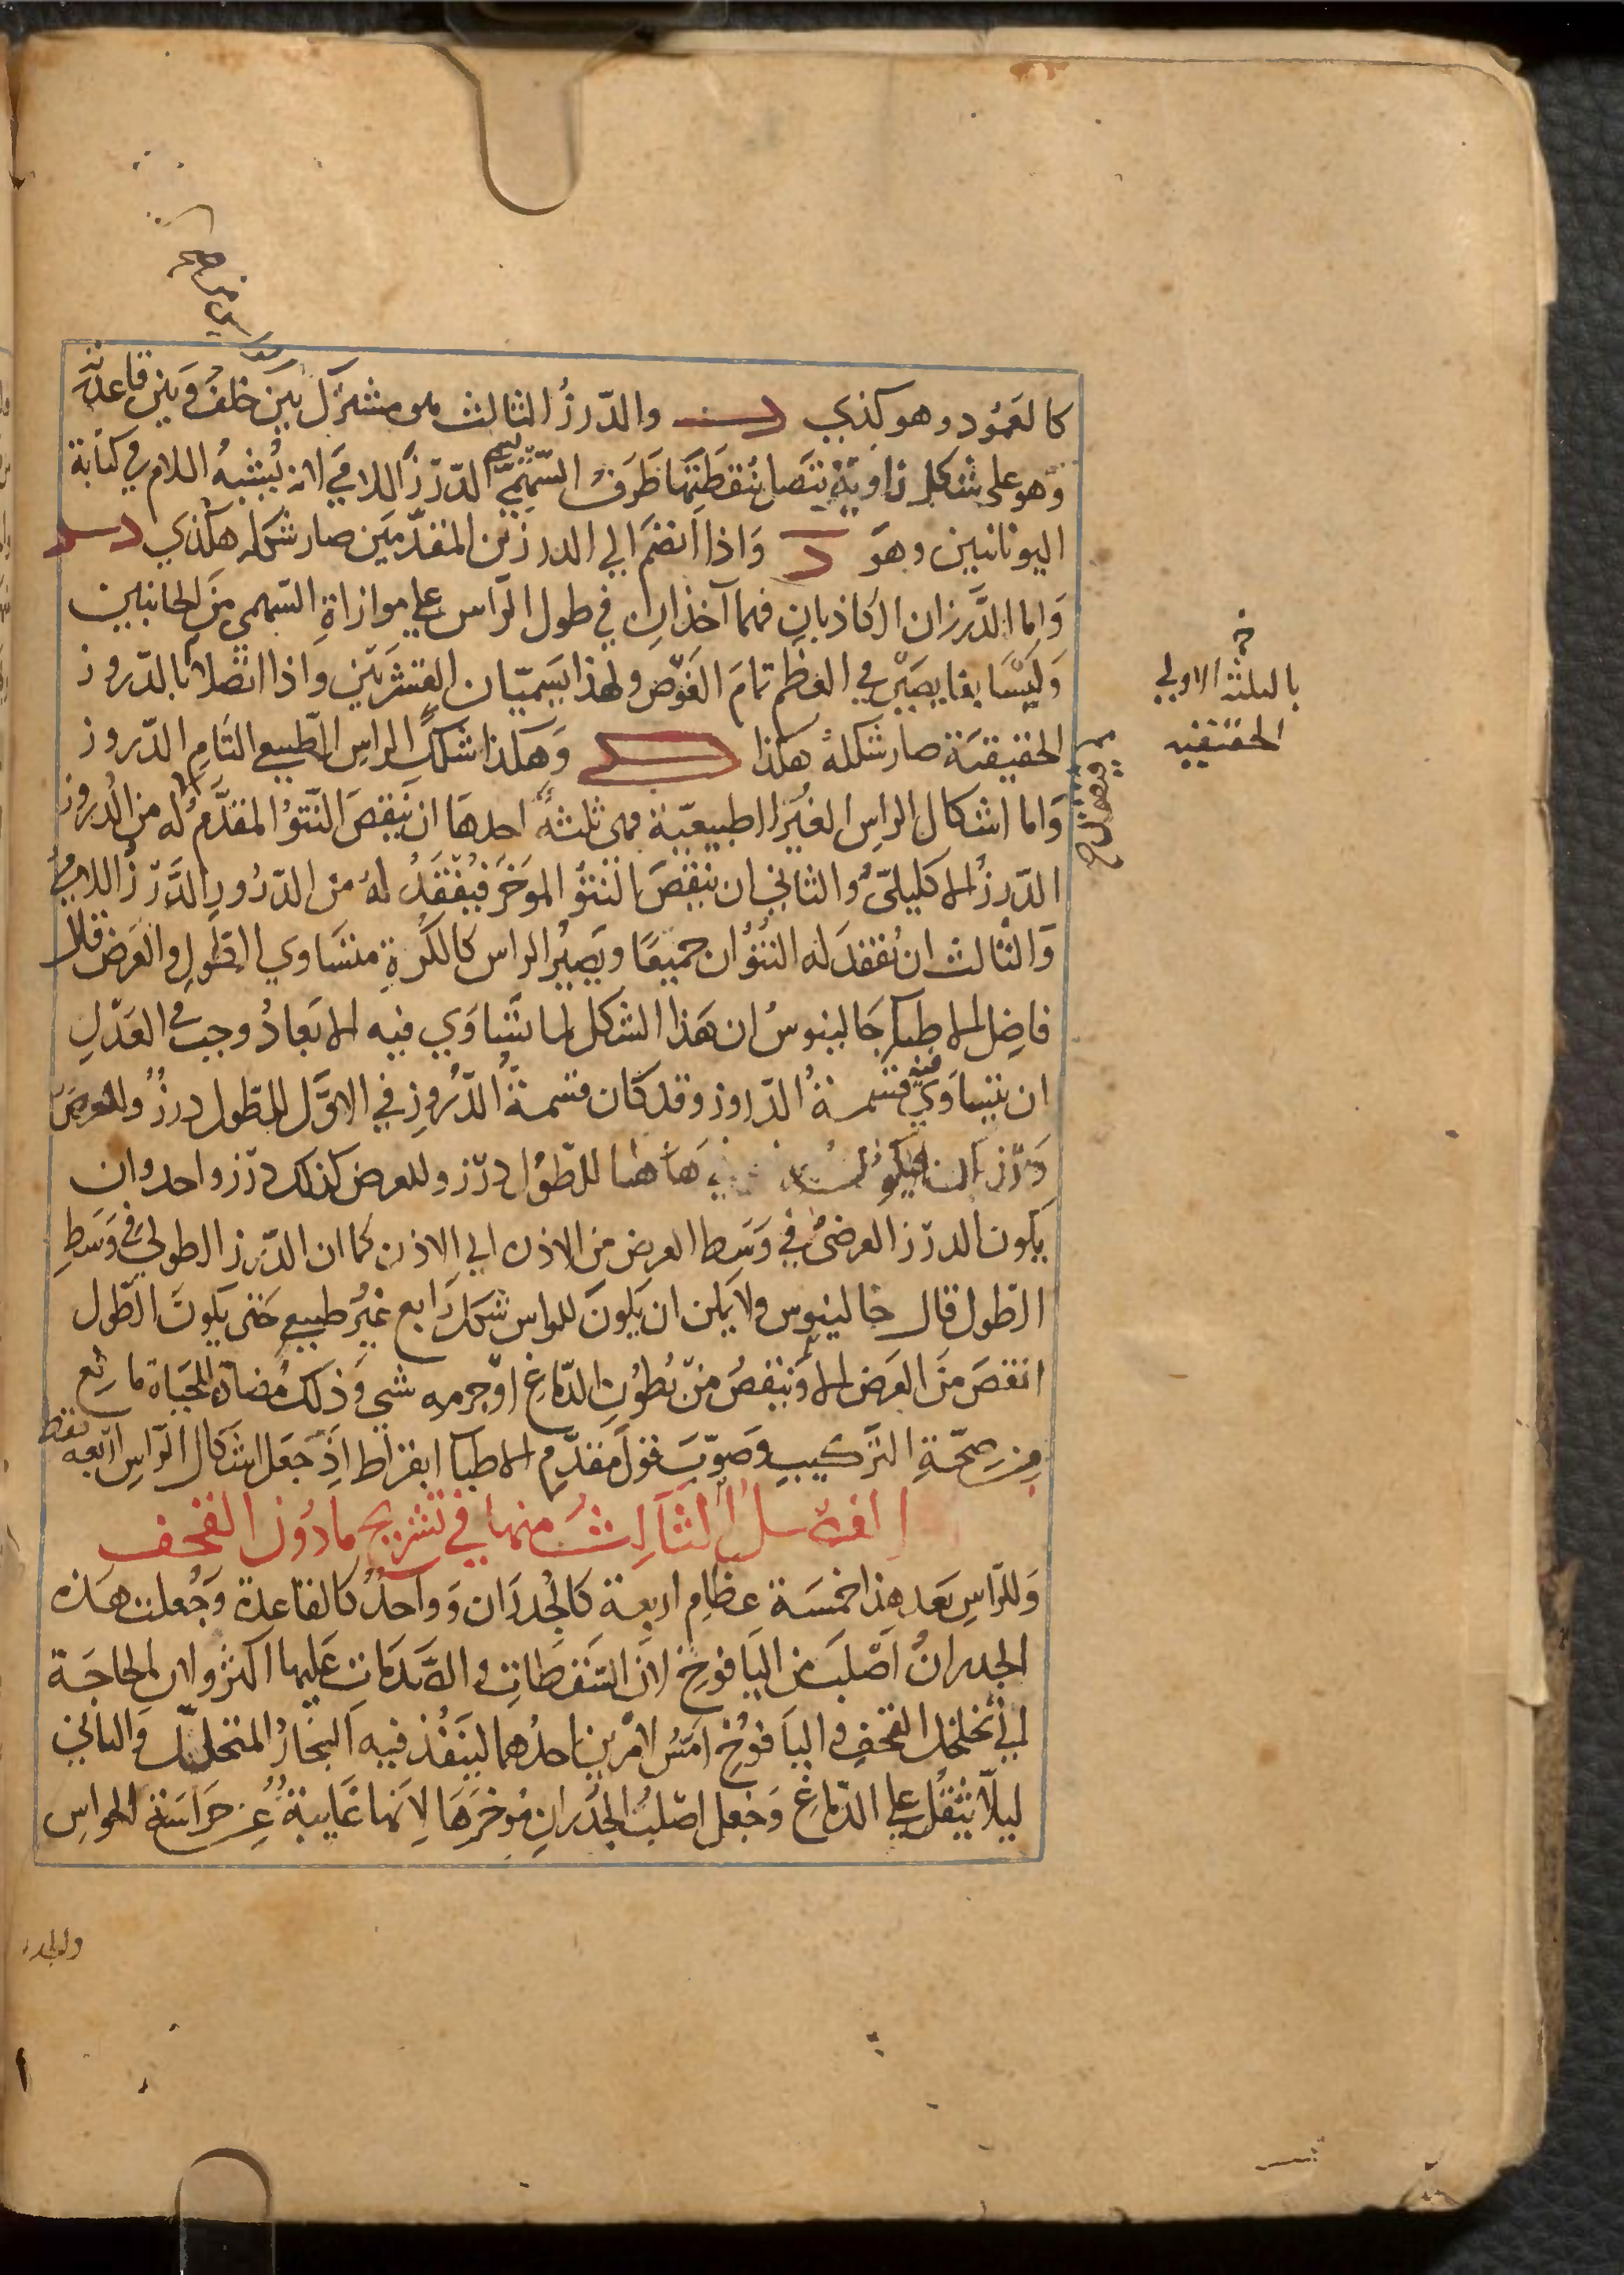 كالعمود وهو كذي والدرز الثالث هو مشترك بين خلف وبين قاعدته
وهو على شكل زاوية يتصل بنقطتها طرف السهمي يسمى الدرز اللامي لانه يشبه اللام في كتابة
اليونانيين وهو واذا انضم الى الدرزين المقدمين صار شكله هكذي
واما الدرزان الكاذبان فهما آخذان في طول الراس على موازاة السهمي من الجانبين
وليسا بغايصين في العظم تمام الغوص ولهذا يسميان القشريين واذا اتصلا بالدروز
الحقيقية صار شكله هكذا وهكذا شكل الراس الطبيعي التام الدروز
واما اشكال الراس الغير الطبيعية فهي ثلثة احدها ان ينقص النتؤ المقدم له من الدروز
الدرز الاكليلي والثاني ان ينقص النتؤ الموخر فيفقد له من الدرور الدرز اللامي
والثالث ان يفقد له النتؤان جميعا ويصير الراس كالكرة متساوي الطول والعرض قال
فاضل الاطبا جالينوس ان هذا الشكل لما تساوي فيه الابعاد وجب في العدل
ان يتساوي فيه قسمة الدروز وقد كان قسمة الدروز في الاول للطول درز وللعرض
درزان فيكون هاهنا للطول درز وللعرض كذلك درز واحد وان
يكون الدرز العرضي في وسط العرض من الاذن الي الاذن كما ان الدرز الطولي في وسط
الطول قال جالينوس ولا يمكن ان يكون للراس شكل رابع غير طبيعي حتى يكون الطول
انقص من العرض الا وينقص من بطون الدماغ او جرمه شي وذلك مضاد للحياة مانع
من صحة التركيب وصوب قول مقدم الاطبا ابقراط اذ جعل اشكال الراس اربعة فقط
الفصل الثالث منها في تشريح مادون القحف
وللراس بعد هذا خمسة عظام اربعة كالجدران وواحد كالقاعدة وجعلت هذه
الجدران اصلب من اليافوخ لان السقطات والصدمات عليها اكثر ولان الحاجة
الي تخلخل القحف واليافوخ امس لامرين احدهما لينفذ فيه البخار المتحلل والثاني
ليلا يثقل على الدماغ وجعل اصلب الجدران موخرها لانها غايبة عن حراسة الحواس
خ
بالثلثة الاولي
الحقيقية
والجدر